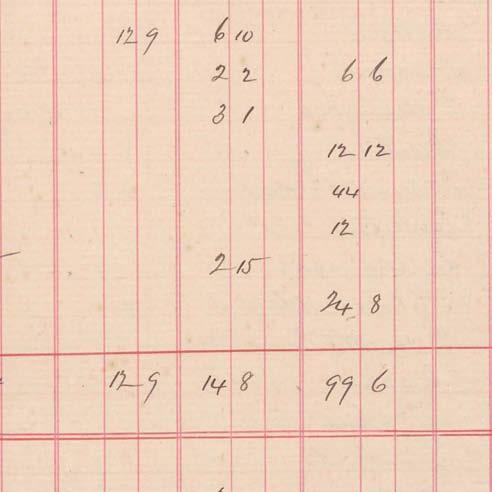 12 9 6 10
2 2 6 6
3 1
12 12
44
12
2 15
24 8
12 9 14 8 99 6